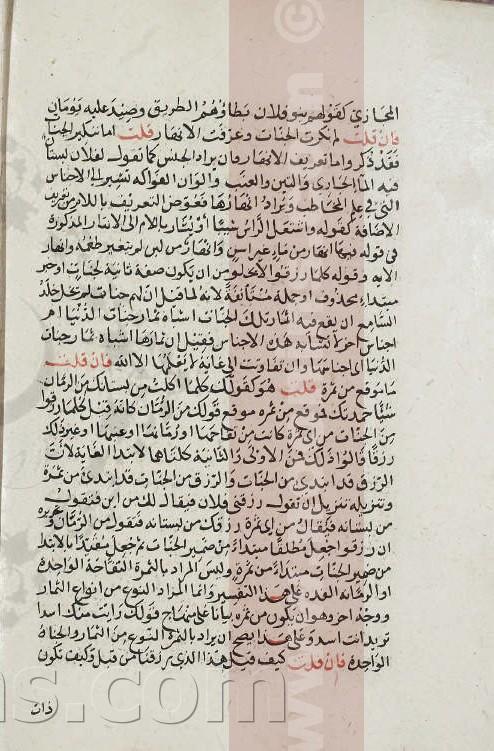 المجازي كقولهم بنو فلان يطاؤهم الطريق وصيد عليه يومان
فان قلت لم نكرت الجنات وعرفت الانهار قلت اما تنكير الجنات
فقد ذكر واما تعريف الانهار فان يراد الجنس كما تقول لفلان بستان
فيه الماء الجاري والتين والعنب والوان الفواكه تشير الى الاجناس
التي في علم المخاطب ويراد انهارها فعوض التعريف باللام من تعريف
الاضافة كقوله واشتعل الراس شيبا او يشار باللام الى الانهار المذكورة
في قوله فيها انهار من ماء غير اسن وانهار من لبن لم يتغير طعمه وانهار
الايه وقوله كلما رزقوا لا يخلو من ان يكون صفة ثانية لجنات او خبر
مبتداء محذوف او جملة مستانفة لانه لما قيل ان لهم جنات لم يخل خلد
السامع ان يقع فيه اثمار تلك الجنات اشباه ثمار جنات الدنيا ام
اجناس اخر لا تشابه هذه الاجناس فقيل ان ثمارها اشباه ثمار جنات
الدنيا اى اجناسها وان تفاوتت الى غاية لا يعلمها الا الله فان قلت
ما موقع من ثمرة قلت هو كقولك كلما اكلت من بستانك من الرمان
شيئا حمدتك فموقع من ثمره موقع قولك من الرمان كانه قيل كلما رزقوا
من الجنات من اى ثمرة كانت من تفاحها او رمانها او عنبها او غير ذلك
رزقا قالوا ذلك فمن الاولى والثانية كلتاهما لابتدا الغاية لان
الرزق قد ابتدى من الجنات والرزق من الجنات قد ابتدى من ثمرة
وتنزيله تنزيل ان تقول رزقني فلان فيقال لك من اين فتقول
من بستانه فيقال من اى ثمرة رزقك من بستانه فتقول من الرمان وتحريره
ان رزقوا جعل مطلقا مبتداء من ضمير الجنات ثم جعل مقيدا بالابتدا
من ضمير الجنات مبتداء من ثمرة وليس المراد بالثمرة التفاحة الواحدة
او الرمانة الفذه على هذا التفسير وانما المراد النوع من انواع الثمار
ووجه اخر وهو ان يكون من ثمره بيانا على منهاج قولك رايت منك اسدا
تريد انت اسد وعلى هذا يصح ان يراد بالثمرة النوع من الثمار والجناة
الواحدة فان قلت كيف قيل هذا الذي رزقنا من قبل وكيف تكون
ذات
ns.com